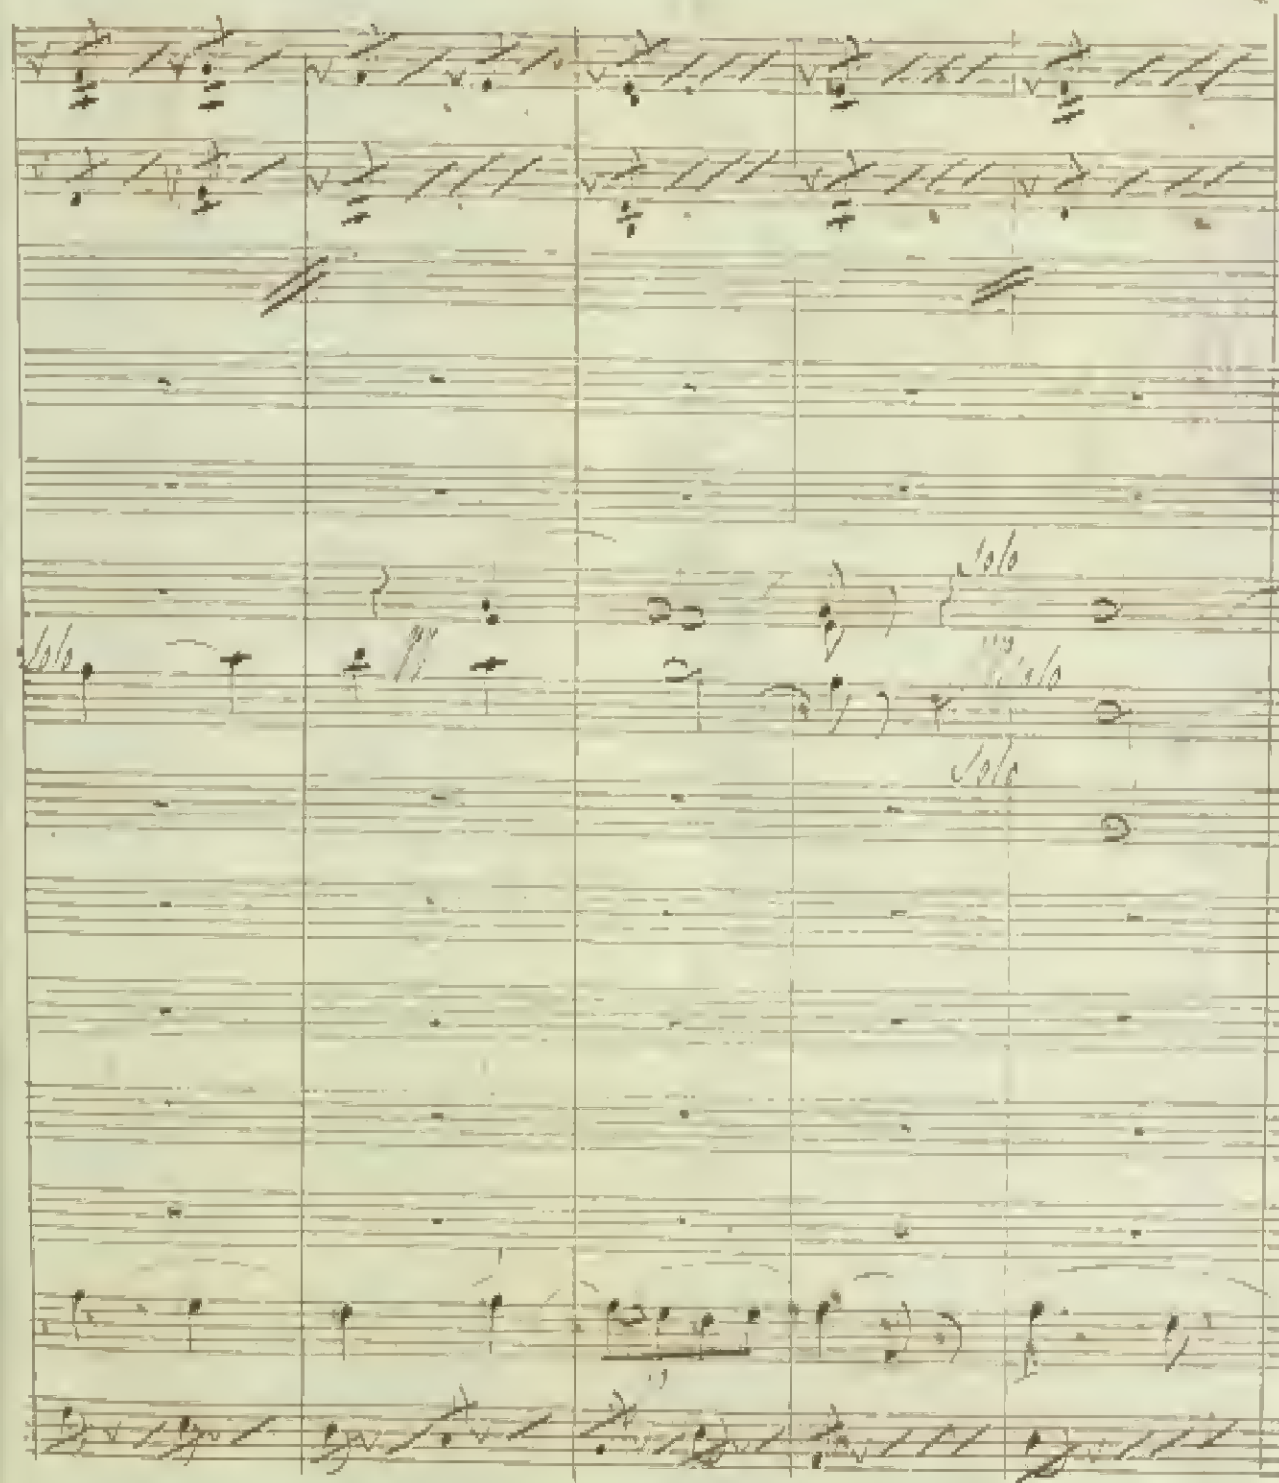 Solo
Solo
pp
pp Solo
Solo